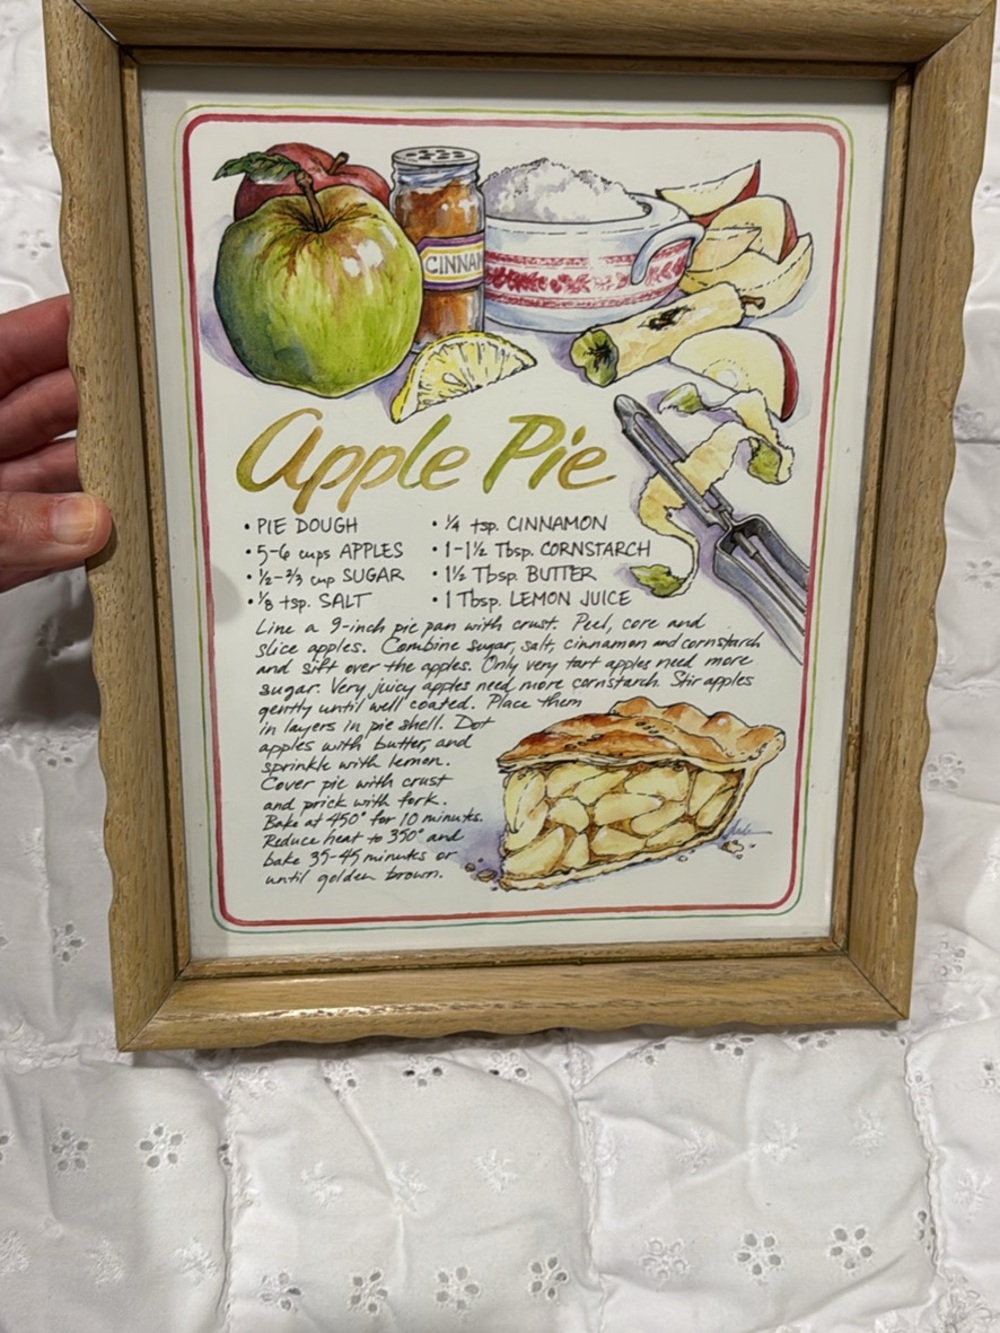 CINNAM
Apple Pie
• PIE DOUGH
• 5-6 cups APPLES
• ½-⅔ cup SUGAR
• ⅛ tsp. SALT
• ¼ tsp. CINNAMON
• 1-1½ Tbsp. CORNSTARCH
• 1½ Tbsp. BUTTER
• 1 Tbsp. LEMON JUICE
Line a 9-inch pie pan with crust. Peel, core and
slice apples. Combine sugar, salt, cinnamon and cornstarch
and sift over the apples. Only very tart apples need more
sugar. Very juicy apples need more cornstarch. Stir apples
gently until well coated. Place them
in layers in pie shell. Dot
apples with butter, and
sprinkle with lemon.
Cover pie with crust
and prick with fork.
Bake at 450° for 10 minutes.
Reduce heat to 350° and
bake 35-45 minutes or
until golden brown.